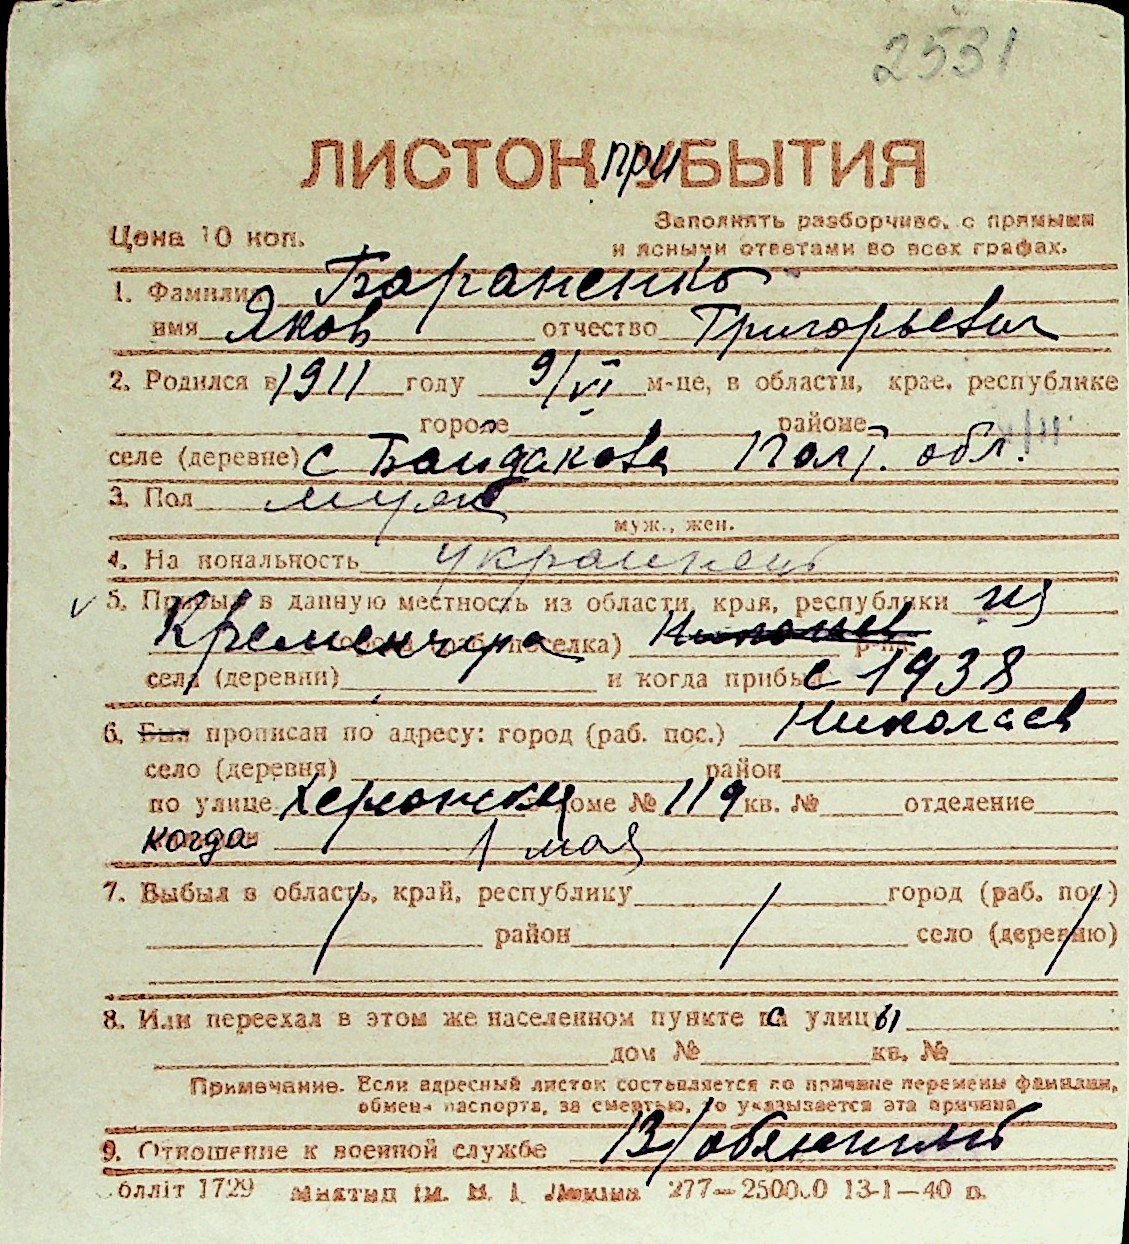 2531
ЛИСТОК при УБЫТИЯ
Цена 10 коп.
Заполнять разборчиво, с прямыми
и ясными ответами во всех графах.
1. Фамилия Бараненко
имя Яков отчество Григорьевич
2. Родился в 1911 году 9/VI м-це, в области, крае, республике
городе районе
селе (деревне) с Байдакова Полт. обл.
3. Пол муж
муж., жен.
4. На нональность украинець
5. Прибыл в данную местность из области, края, республики из
Кременчуга поселка) Николаев
села (деревни) и когда прибыл с 1938
6. Был прописан по адресу: город (раб. пос.) Николаев
село (деревня) район
по улице Херсонская доме № 119 кв. № отделение
когда 1 мая
7. Выбыл в область, край, республику город (раб. пос.)
район село (деревню)
8. Или переехал в этом же населенном пункте с улицы
дом № кв. №
Примечание. Если адресный листок составляется по причине перемены фамилии,
обмена паспорта, за смертью, то указывается эта причина
9. Отношение к военной службе В/обязанный
бллiт 1729 277—25000 13-1—40 р.